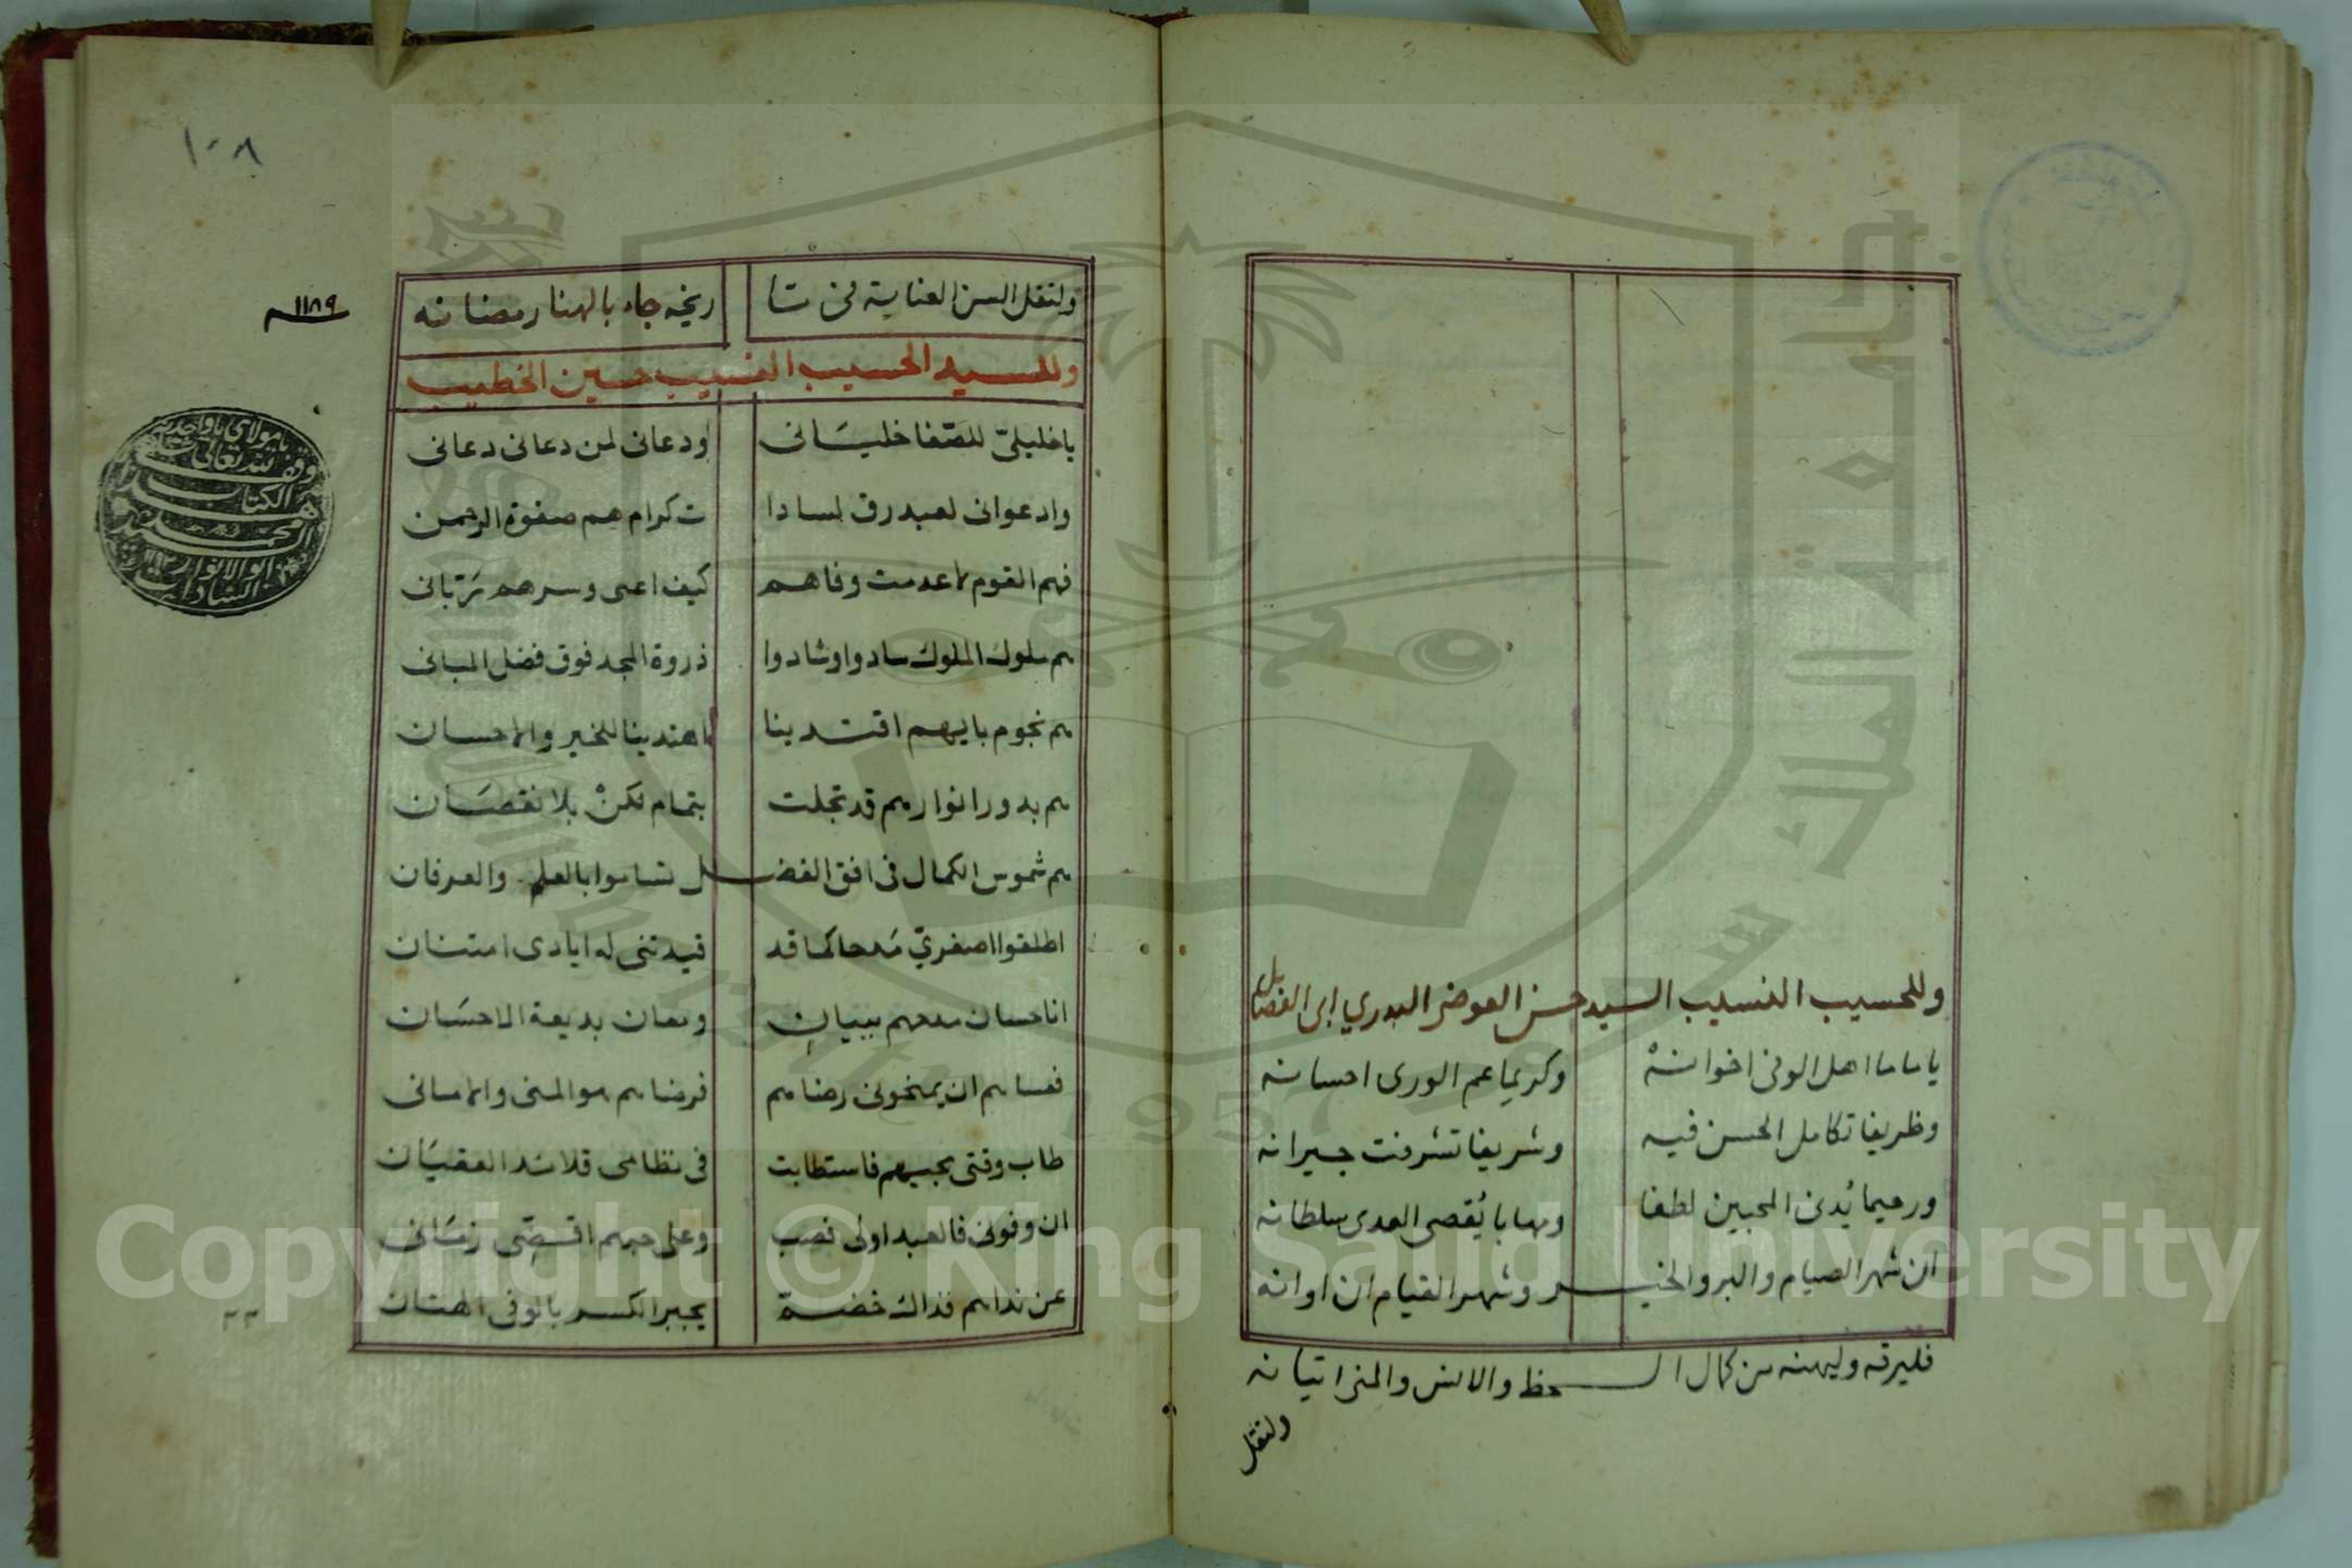 وللحسيب النسيب السيد حسن العوضي البدري ابى الفضايل
ياماما اهل الوفى اخوانهْ وكريما عم الورى احسانه
وظريفا تكامل الحسن فيه وشريفا تشرفت جيرانه
ورحيما يُدنى المحبين لطفا ومهابا يُقصى العدى سلطانه
ان شهر الصيام والبر والخيـــر وشهر القيام ان اوانه
فليرقه وليهنه من كمال الـــحظ والانس والمنى اتيانه
ولتقل
١٠٨
ولتقل السن العناية لى تا ريخه جاء بالهنا رمضانه
١١٨٩
وللسيد الحسيب النسيب حسين الخطيب
ياخليليّ للصّفا خليَانى ودعانى لمن دعانى دعانى
وادعوانى لعبد رق لسادا ت كرام هم صفوة الرحمن
فهم القوم لاعدمت وفاهم كيف اعمى وسرهم رَبّانى
هم ملوك الملوك سادوا وشادوا ذروة المجد فوق فضل المبانى
هم نجوم بايهم اقتدينا لاهتدينا للخير والاحسان
هم بدور انوارهم قد تجلت بتمام لكنْ بلا نقصَان
هم شموس الكمال فى افق الفضـــل تساموا بالعلم والعرفان
اطلقوا اصغريّ مَدحا كما قد قيدتنى له ايادى امتنان
انا حسان مدحهم ببيانٍ ومعان بديعة الاحسَان
فعساهم ان يمنحونى رضاهم فرضاهم هو المنى والامانى
طاب وقتى بحبهم فاستطابت فى نظامى قلائد العقيَان
ان وفونى فالعبد اولى فصب وعلى حبهم اقضّى زمَانى
عن نداهم فذاك خضمة يجبر الكسر بالوفى الهتان
يامولاى ياواحد
وقف لله تعالى
الكتاب
محمد
ابو الانوار
السادات
Copyright © King Saud University
1957